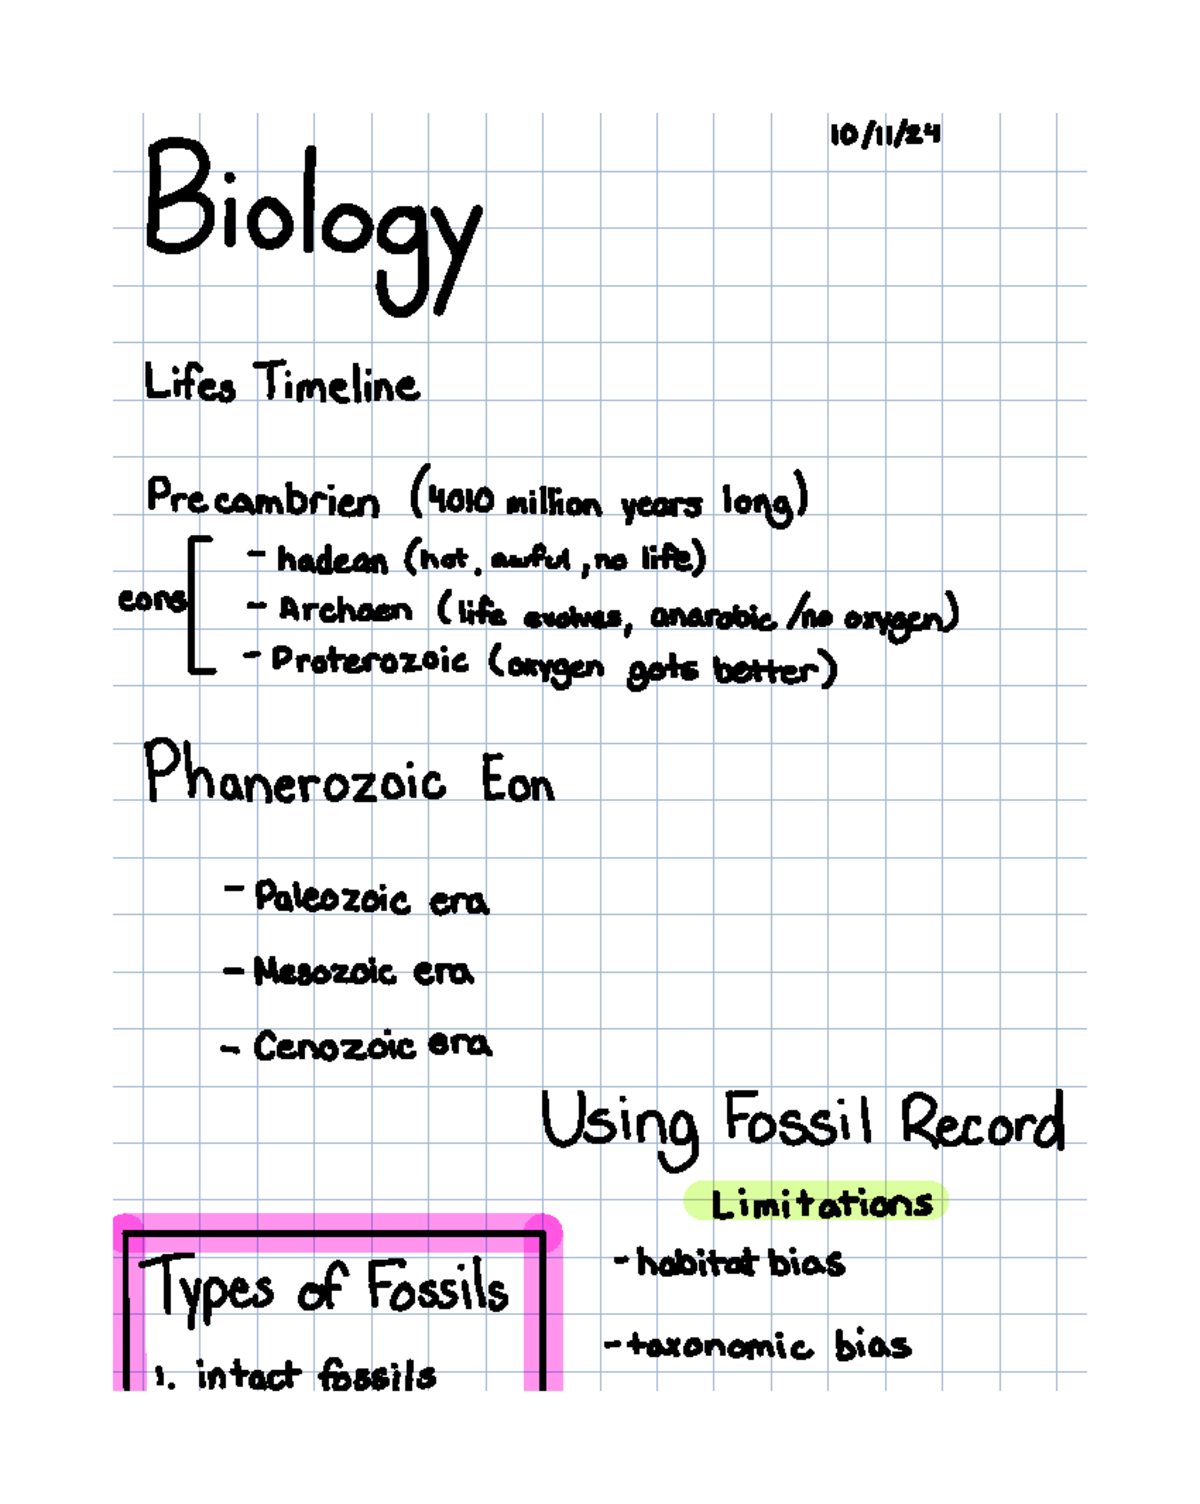 10/11/24
Biology
Lifes Timeline
Precambrien (4010 million years long)
- hadean (hot, awful, no life)
eons
- Archaen (life evolves, anarobic /no oxygen)
- Proterozoic (oxygen gets better)
Phanerozoic Eon
- Paleozoic era
- Mesozoic era
- Cenozoic era
Using Fossil Record
Limitations
- habitat bias
- taxonomic bias
Types of Fossils
1. intact fossils